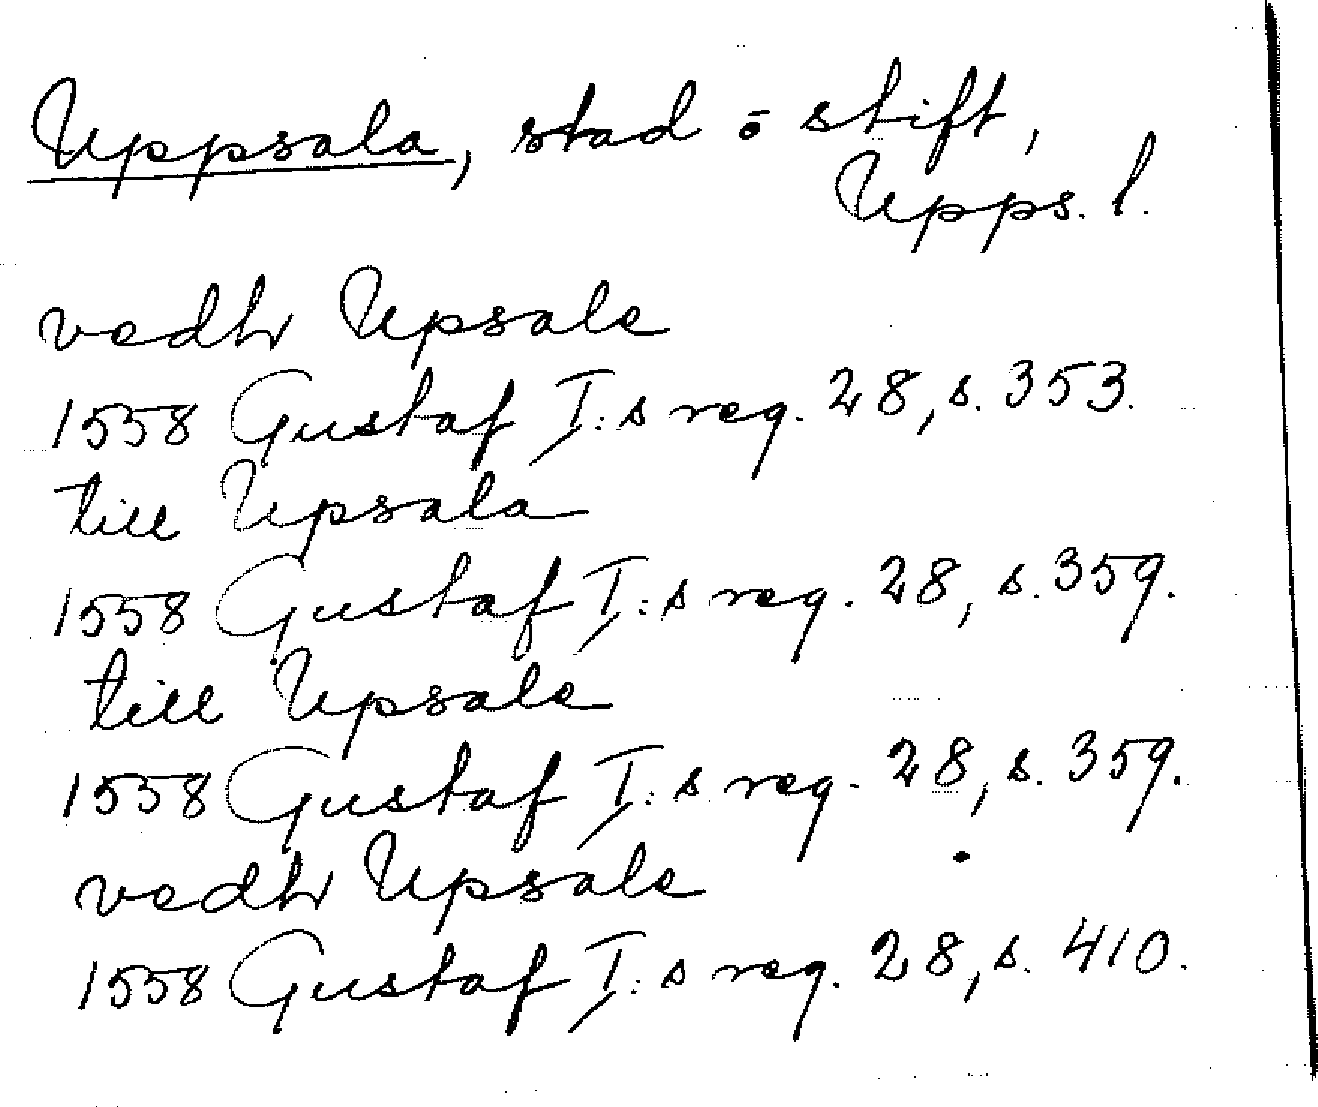 Uppsala, stad o stift,
Upps. l.
vedh Upsale
1558 Gustaf I:s reg. 28, s. 353.
till Upsala
1558 Gustaf I:s reg. 28, s. 359.
till Upsale
1558 Gustaf I:s reg. 28, s. 359.
vedh Upsale
1558 Gustaf I:s reg. 28, s. 410.